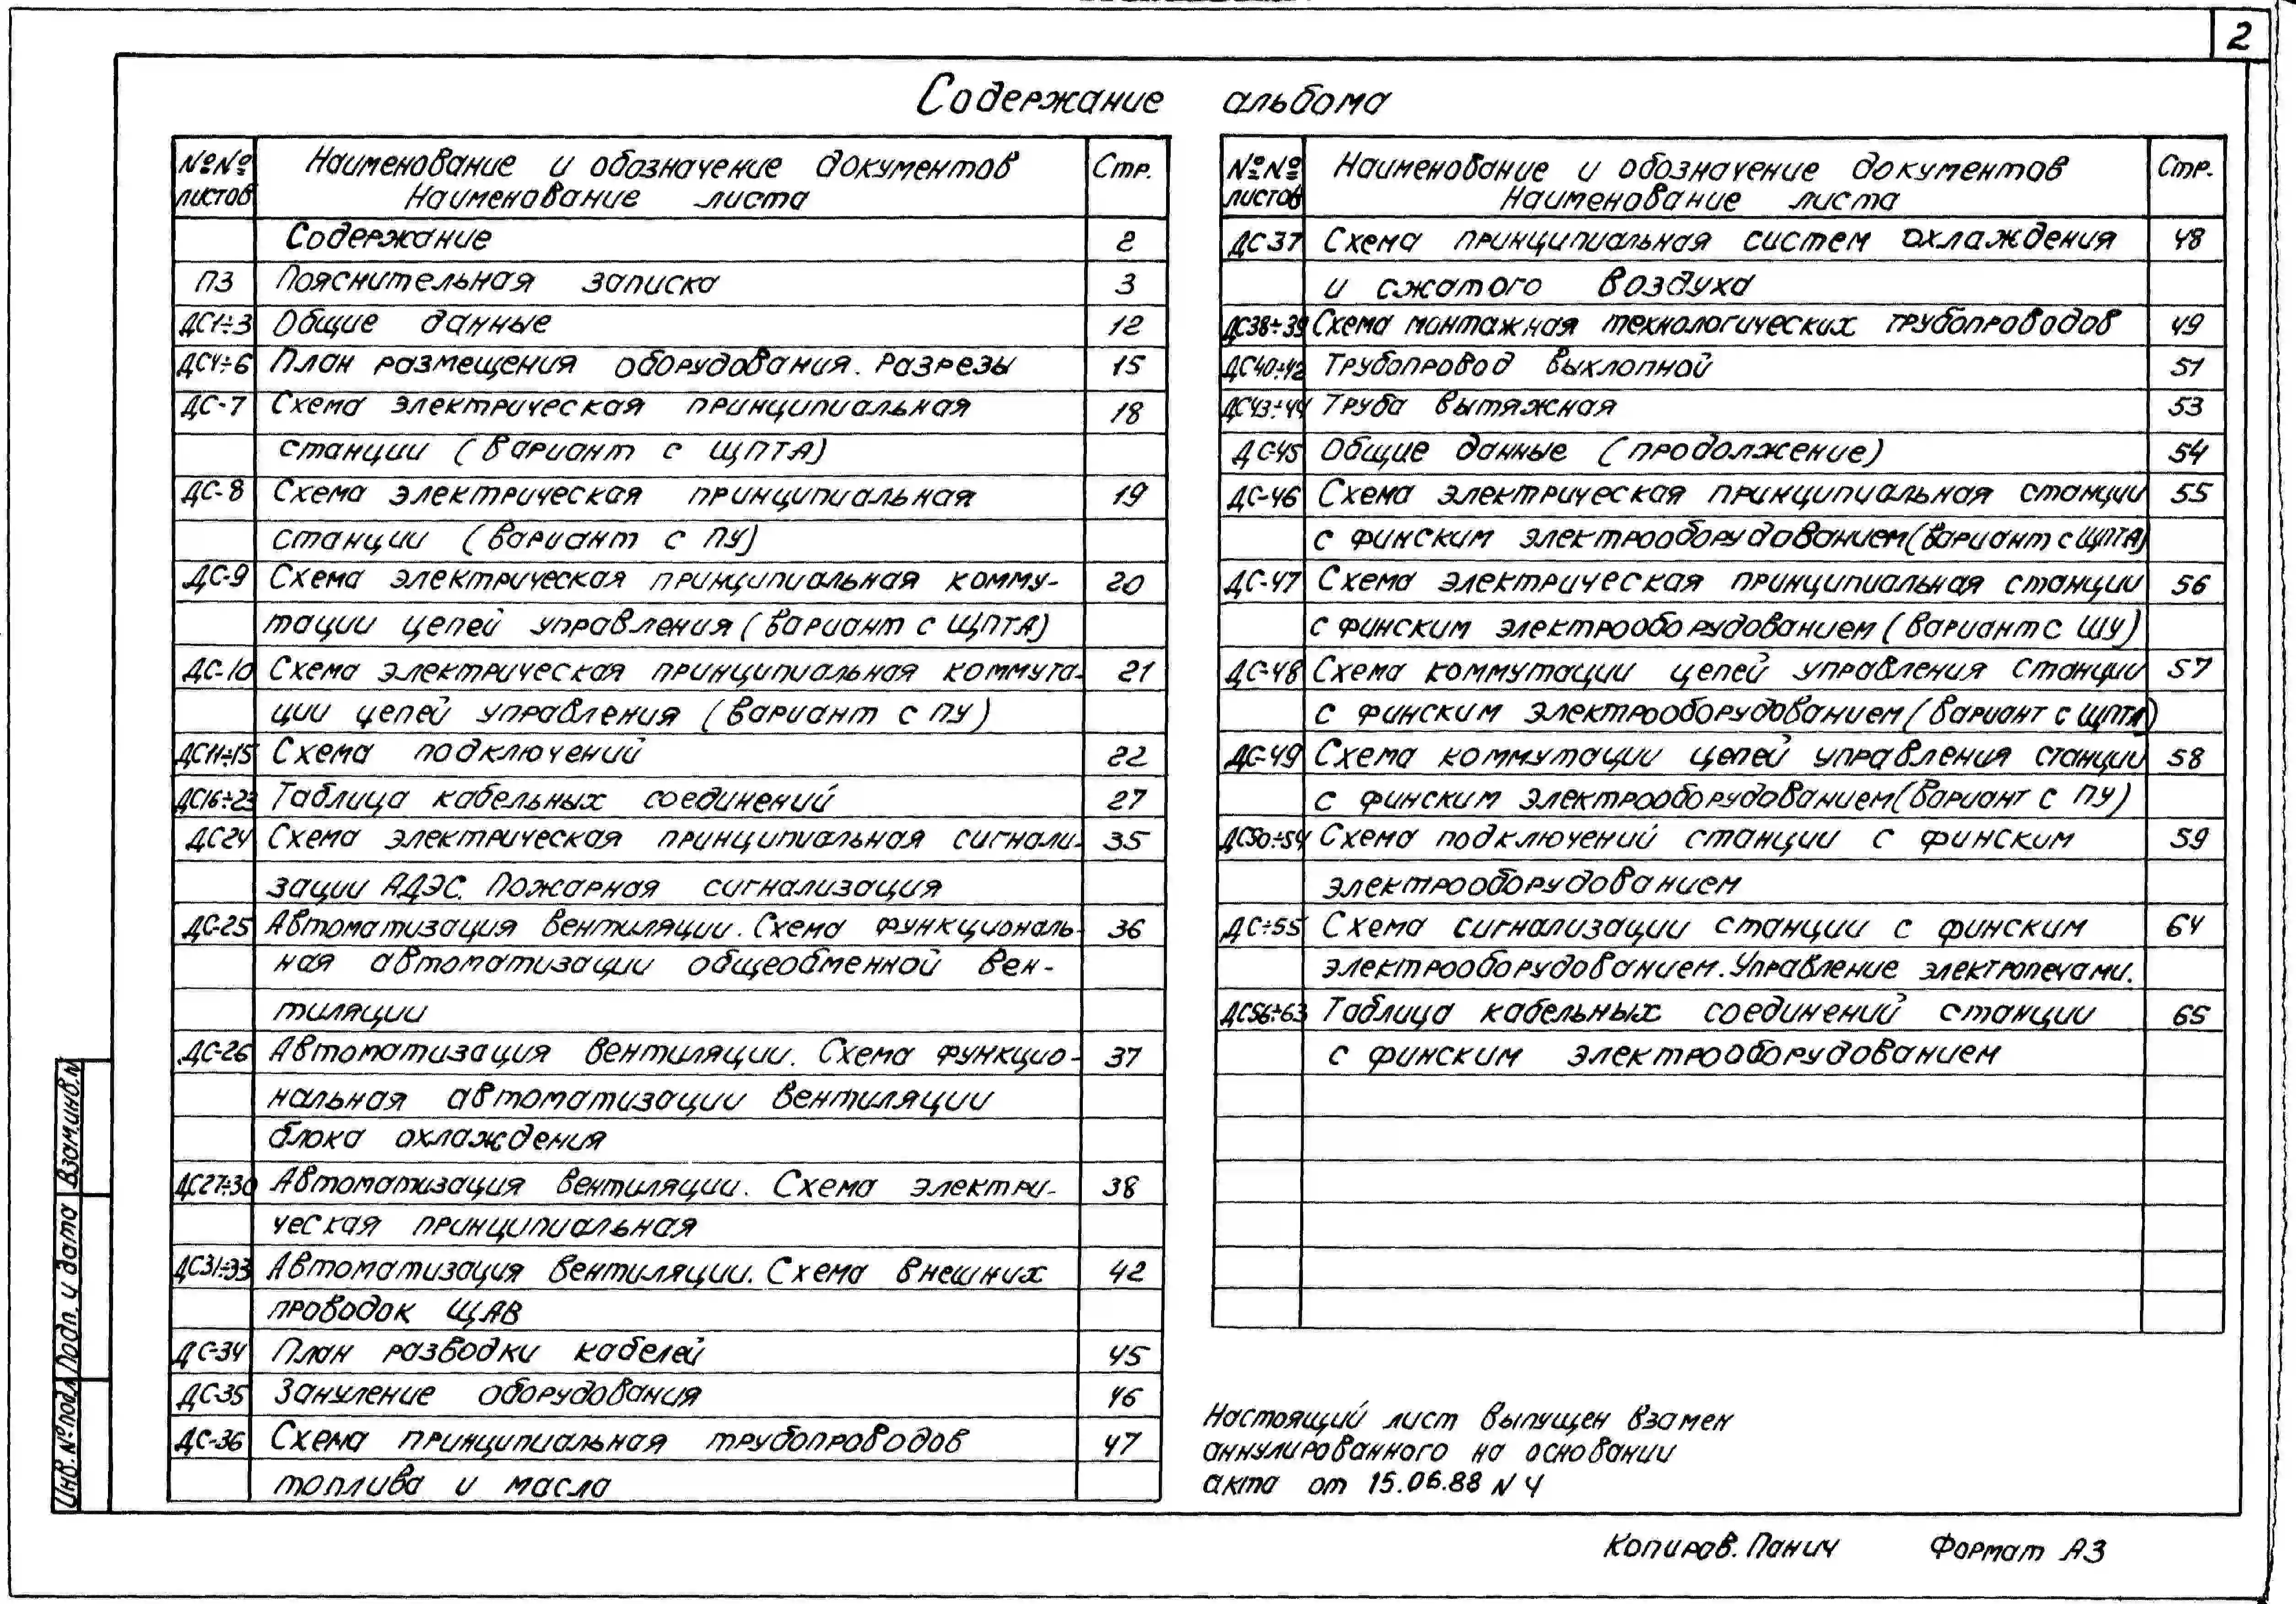 2
Содержание альбома
№№ листов
Наименование и обозначение документов
Наименование листа
Стр.
Содержание 2
ПЗ Пояснительная записка 3
ДС1÷3 Общие данные 12
ДС4÷6 План размещения оборудования. Разрезы 15
ДС-7 Схема электрическая принципиальная 18
станции (вариант с ЩПТА)
ДС-8 Схема электрическая принципиальная 19
станции (вариант с ПУ)
ДС-9 Схема электрическая принципиальная комму- 20
тации цепей управления (вариант с ЩПТА)
ДС-10 Схема электрическая принципиальная коммута- 21
ции цепей управления (вариант с ПУ)
ДС11÷15 Схема подключений 22
ДС16÷23 Таблица кабельных соединений 27
ДС24 Схема электрическая принципиальная сигнали- 35
зации АДЭС. Пожарная сигнализация
ДС-25 Автоматизация вентиляции. Схема функциональ- 36
ная автоматизации общеобменной вен-
тиляции
ДС-26 Автоматизация вентиляции. Схема функцио- 37
нальная автоматизации вентиляции
блока охлаждения
ДС27÷30 Автоматизация вентиляции. Схема электри- 38
ческая принципиальная
ДС31÷33 Автоматизация вентиляции. Схема внешних 42
проводок ЩАВ
ДС-34 План разводки кабелей 45
ДС-35 Зануление оборудования 46
ДС-36 Схема принципиальная трубопроводов 47
топлива и масла
№№ листов
Наименование и обозначение документов
Наименование листа
Стр.
ДС-37 Схема принципиальная систем охлаждения 48
и сжатого воздуха
ДС38÷39 Схема монтажная технологических трубопроводов 49
ДС40÷42 Трубопровод выхлопной 51
ДС43÷44 Труба вытяжная 53
ДС-45 Общие данные (продолжение) 54
ДС-46 Схема электрическая принципиальная станции 55
с финским электрооборудованием (вариант с ЩПТА)
ДС-47 Схема электрическая принципиальная станции 56
с финским электрооборудованием (вариант с ШУ)
ДС-48 Схема коммутации цепей управления станции 57
с финским электрооборудованием (вариант с ЩПТА)
ДС-49 Схема коммутации цепей управления станции 58
с финским электрооборудованием (вариант с ПУ)
ДС50÷54 Схема подключений станции с финским 59
электрооборудованием
ДС÷55 Схема сигнализации станции с финским 64
электрооборудованием. Управление электропечами.
ДС56÷63 Таблица кабельных соединений станции 65
с финским электрооборудованием
Настоящий лист выпущен взамен
аннулированного на основании
акта от 15.06.88 N 4
Инв.№подл Подп. и дата Взам.инв.№
Копиров. Панич Формат А3